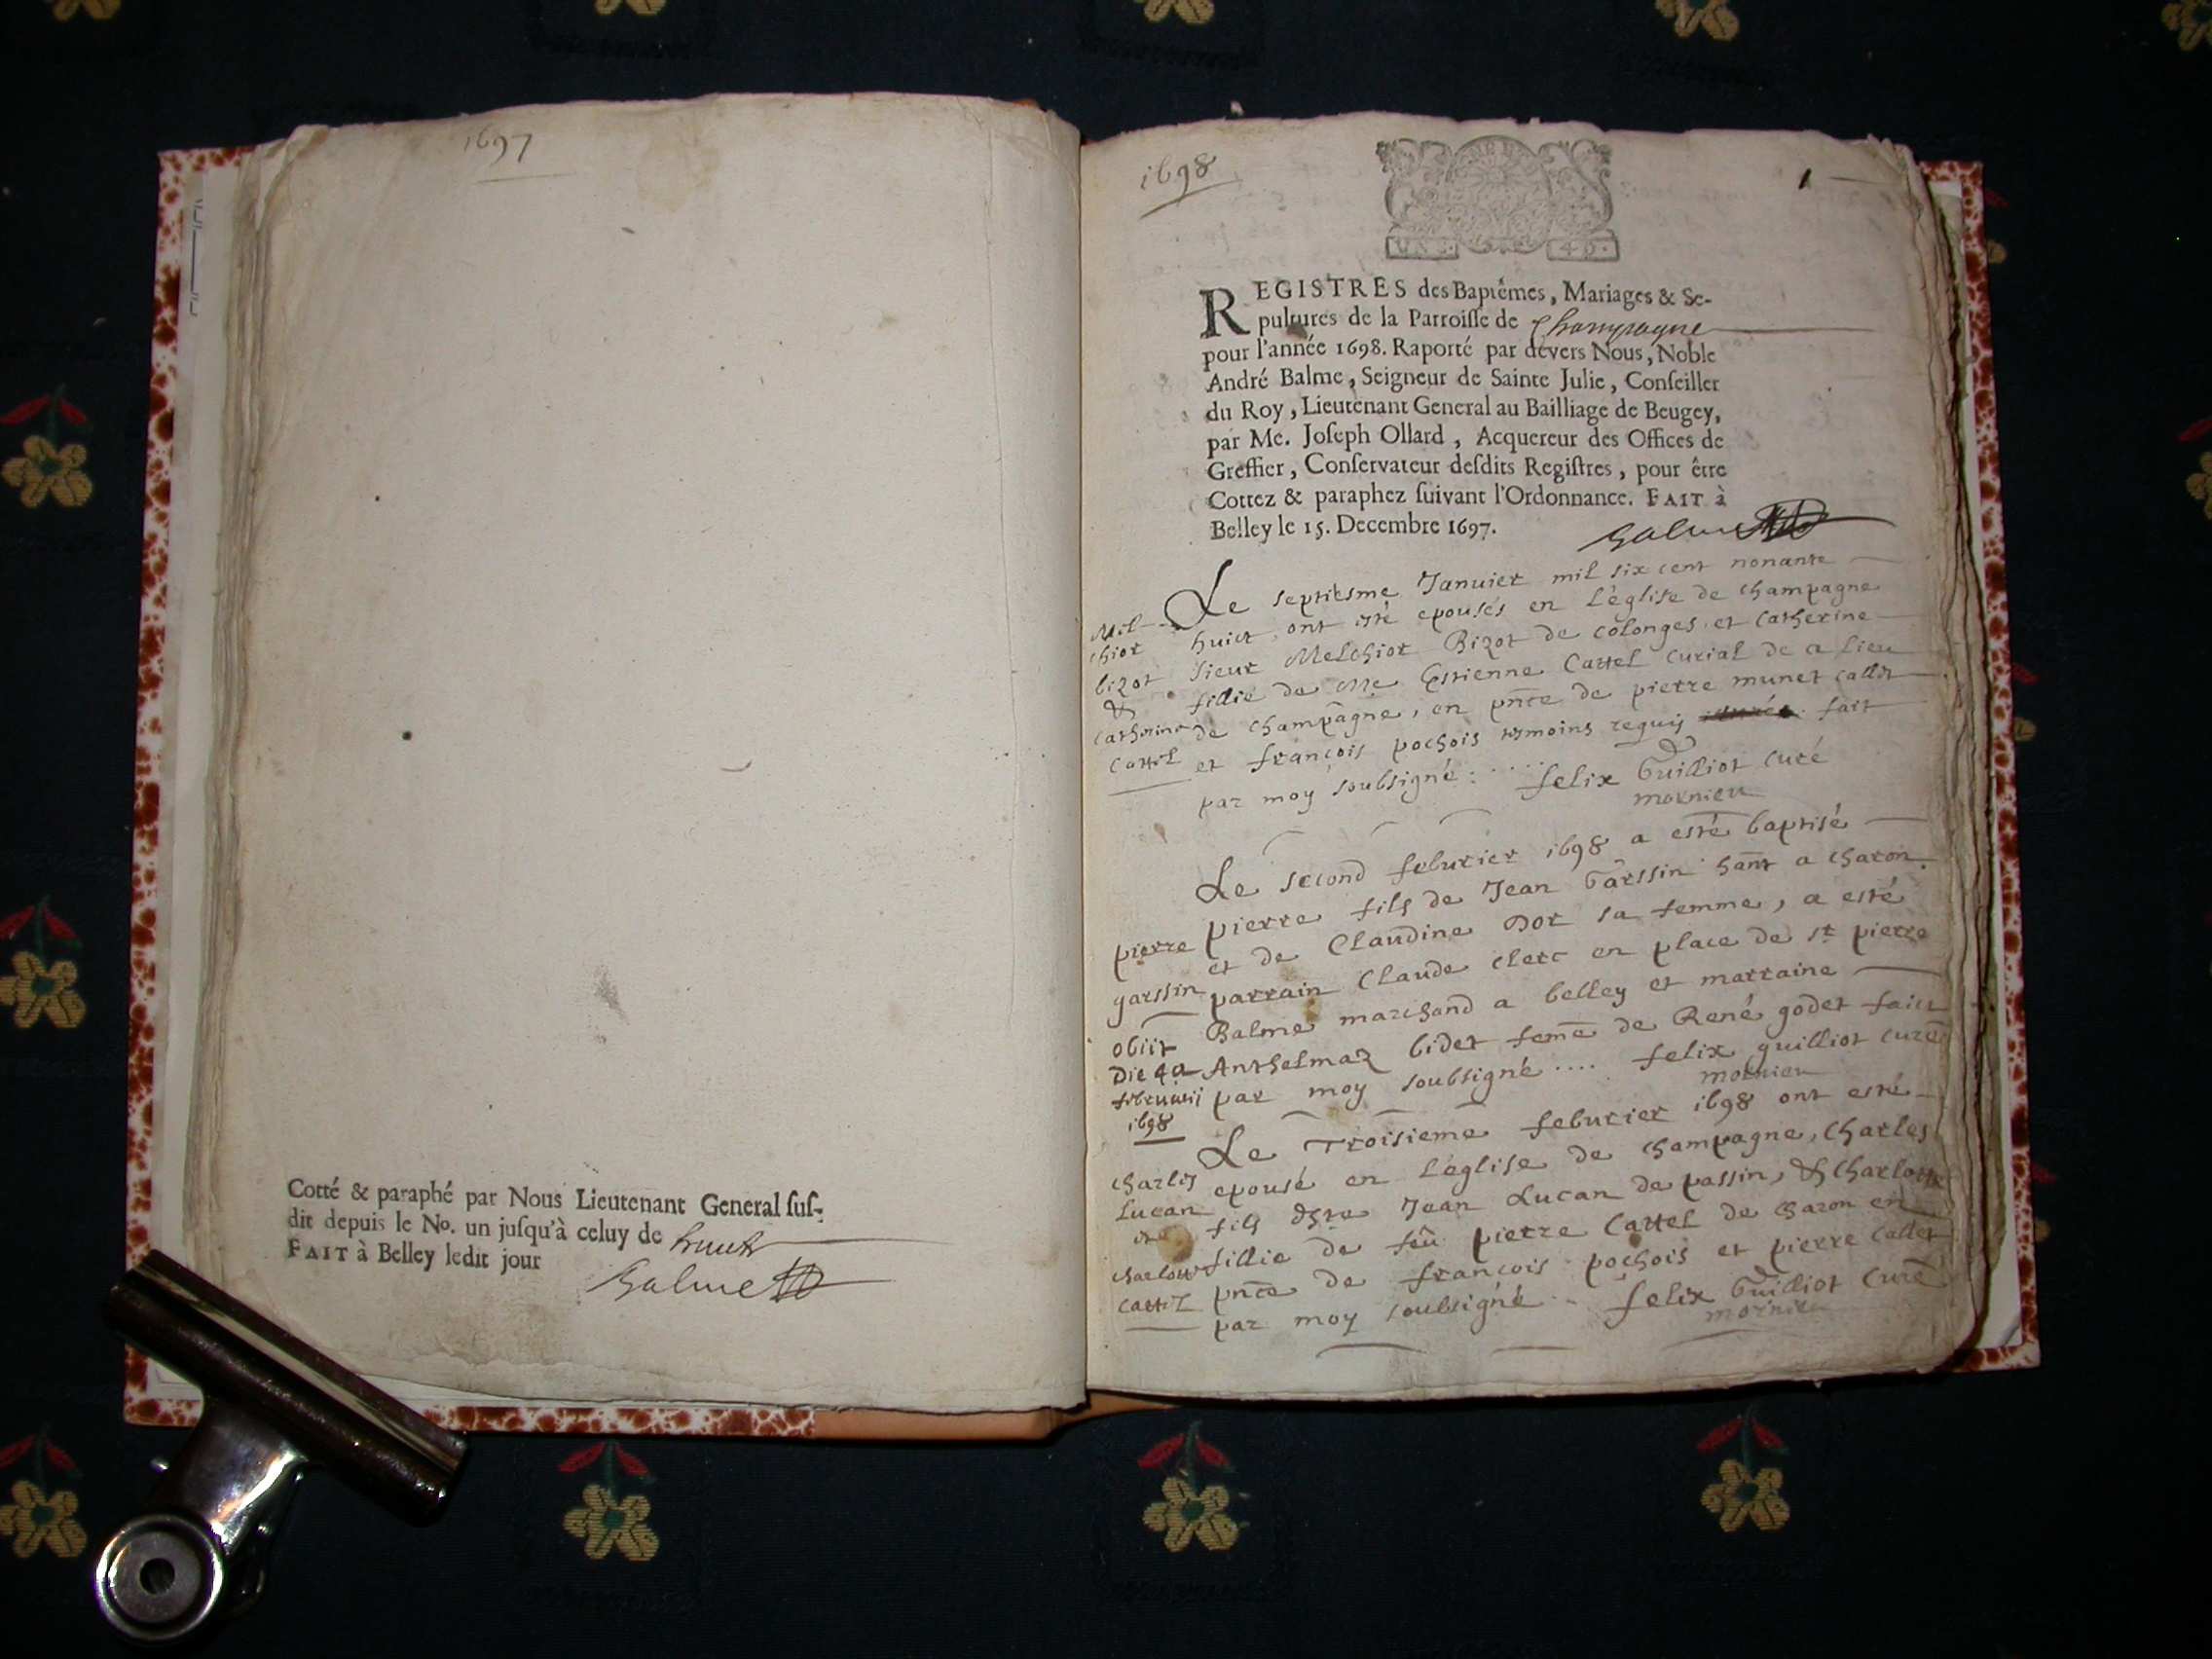 1697
Cotté & paraphé par Nous Lieutenant General suſ-
dit depuis le No. un juſqu'à celuy de huict
FAIT à Belley ledit jour
Balme
1698
1
UNE. 4 D.
REGISTRES des Baptêmes, Mariages & Se-
pultures de la Parroiſſe de Champagne
pour l'année 1698. Raporté par devers Nous, Noble
André Balme, Seigneur de Sainte Julie, Conſeiller
du Roy, Lieutenant General au Bailliage de Beugey,
par Me. Joſeph Ollard, Acquereur des Offices de
Greffier, Conſervateur deſdits Regiſtres, pour être
Cottez & paraphez ſuivant l'Ordonnance. FAIT à
Belley le 15. Decembre 1697.
Balme
Mel-
chior
bizot
&
catherine
Cattel
Le septiesme Januier mil six cent nonante
huict ont esté epousés en L'église de champagne
sieur Melchior Bizot de colonges et Catherine
fillie de Me Estienne Cattel curial de a lieu
de champagne, en pnce de pierre munet callet
et françois pochois tesmoins requis fait
par moy soubsigné : .....
felix Guilliot curé
mornieu
pierre
garssin
obiit
Die 4a
februarii
1698
Le second feburier 1698 a esté baptisé
pierre fils de Jean Garssin hant a charon
et de Claudine Dor sa femme, a esté
parrain Claude clerc en place de sr pierre
Balme marchand a belley et marraine
Anthelmaz bidet feme de René godet faict
par moy soubsigné .... felix guilliot curé
mornieu
charles
Lucan
et
charlotte
cattel
Le Troisieme feburier 1698 ont esté
epousé en L'église de champagne, Charles
fils Jean Lucan de passin, & Charlotte
fillie de feu pierre Cattel de charon en
pnce de françois pochois et pierre callet
par moy soubsigné .. felix Guilliot Curé
mornieu